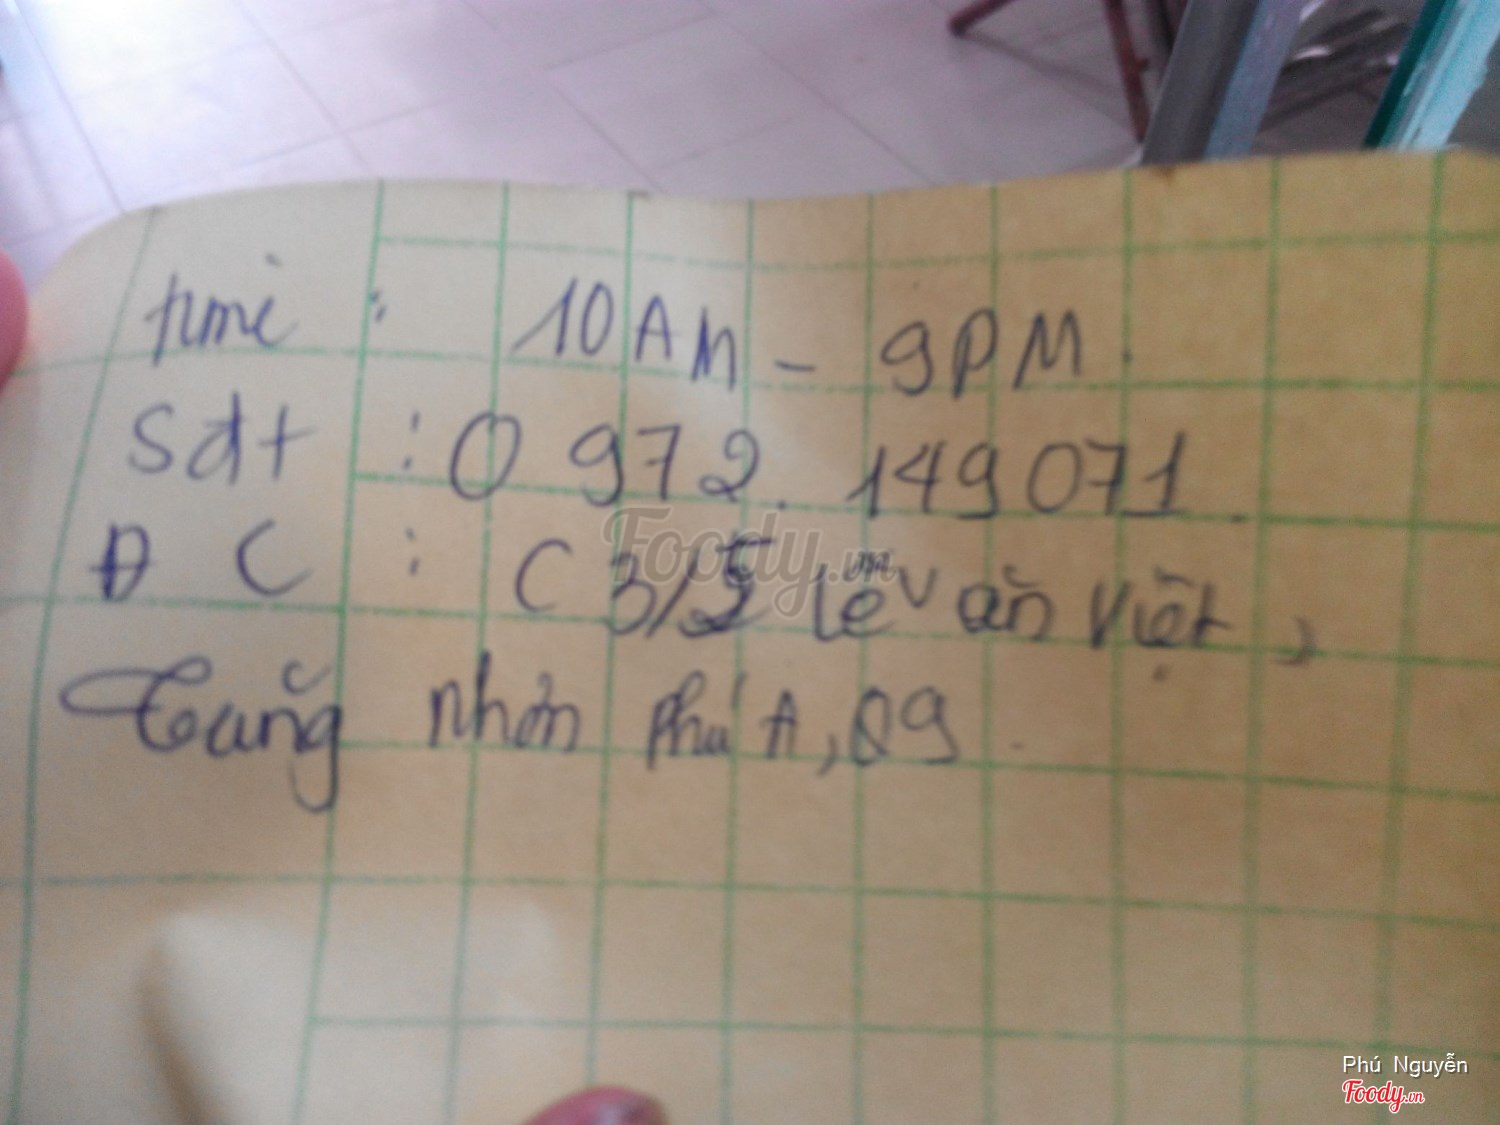 time : 10AM - 9PM.
Sđt : 0972.149071.
ĐC : C3/5 Lê Văn Việt,
Tăng nhơn phú A, Q9.
Foody.vn
Phú Nguyễn
Foody.vn